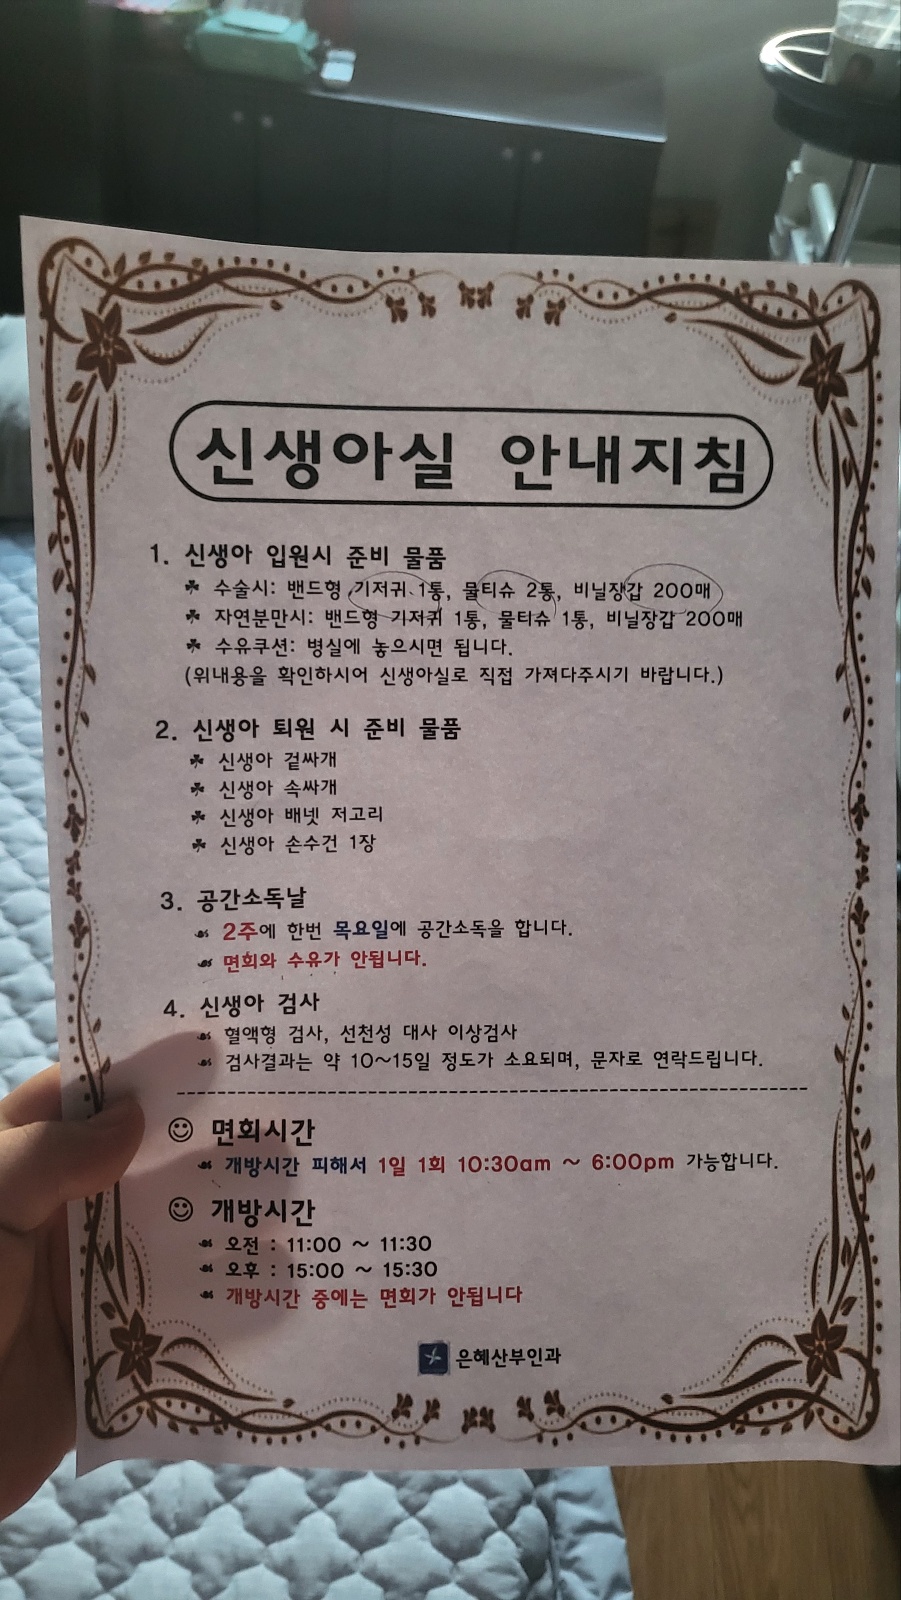 신생아실 안내지침
1. 신생아 입원시 준비 물품
수술시: 밴드형 기저귀 1통, 물티슈 2통, 비닐장갑 200매
자연분만시: 밴드형 기저귀 1통, 물티슈 1통, 비닐장갑 200매
수유쿠션: 병실에 놓으시면 됩니다.
(위내용을 확인하시어 신생아실로 직접 가져다주시기 바랍니다.)
2. 신생아 퇴원 시 준비 물품
신생아 겉싸개
신생아 속싸개
신생아 배넷 저고리
신생아 손수건 1장
3. 공간소독날
2주에 한번 목요일에 공간소독을 합니다.
면회와 수유가 안됩니다.
4. 신생아 검사
혈액형 검사, 선천성 대사 이상검사
검사결과는 약 10~15일 정도가 소요되며, 문자로 연락드립니다.
면회시간
개방시간 피해서 1일 1회 10:30am ~ 6:00pm 가능합니다.
개방시간
오전 : 11:00 ~ 11:30
오후 : 15:00 ~ 15:30
개방시간 중에는 면회가 안됩니다
은혜산부인과